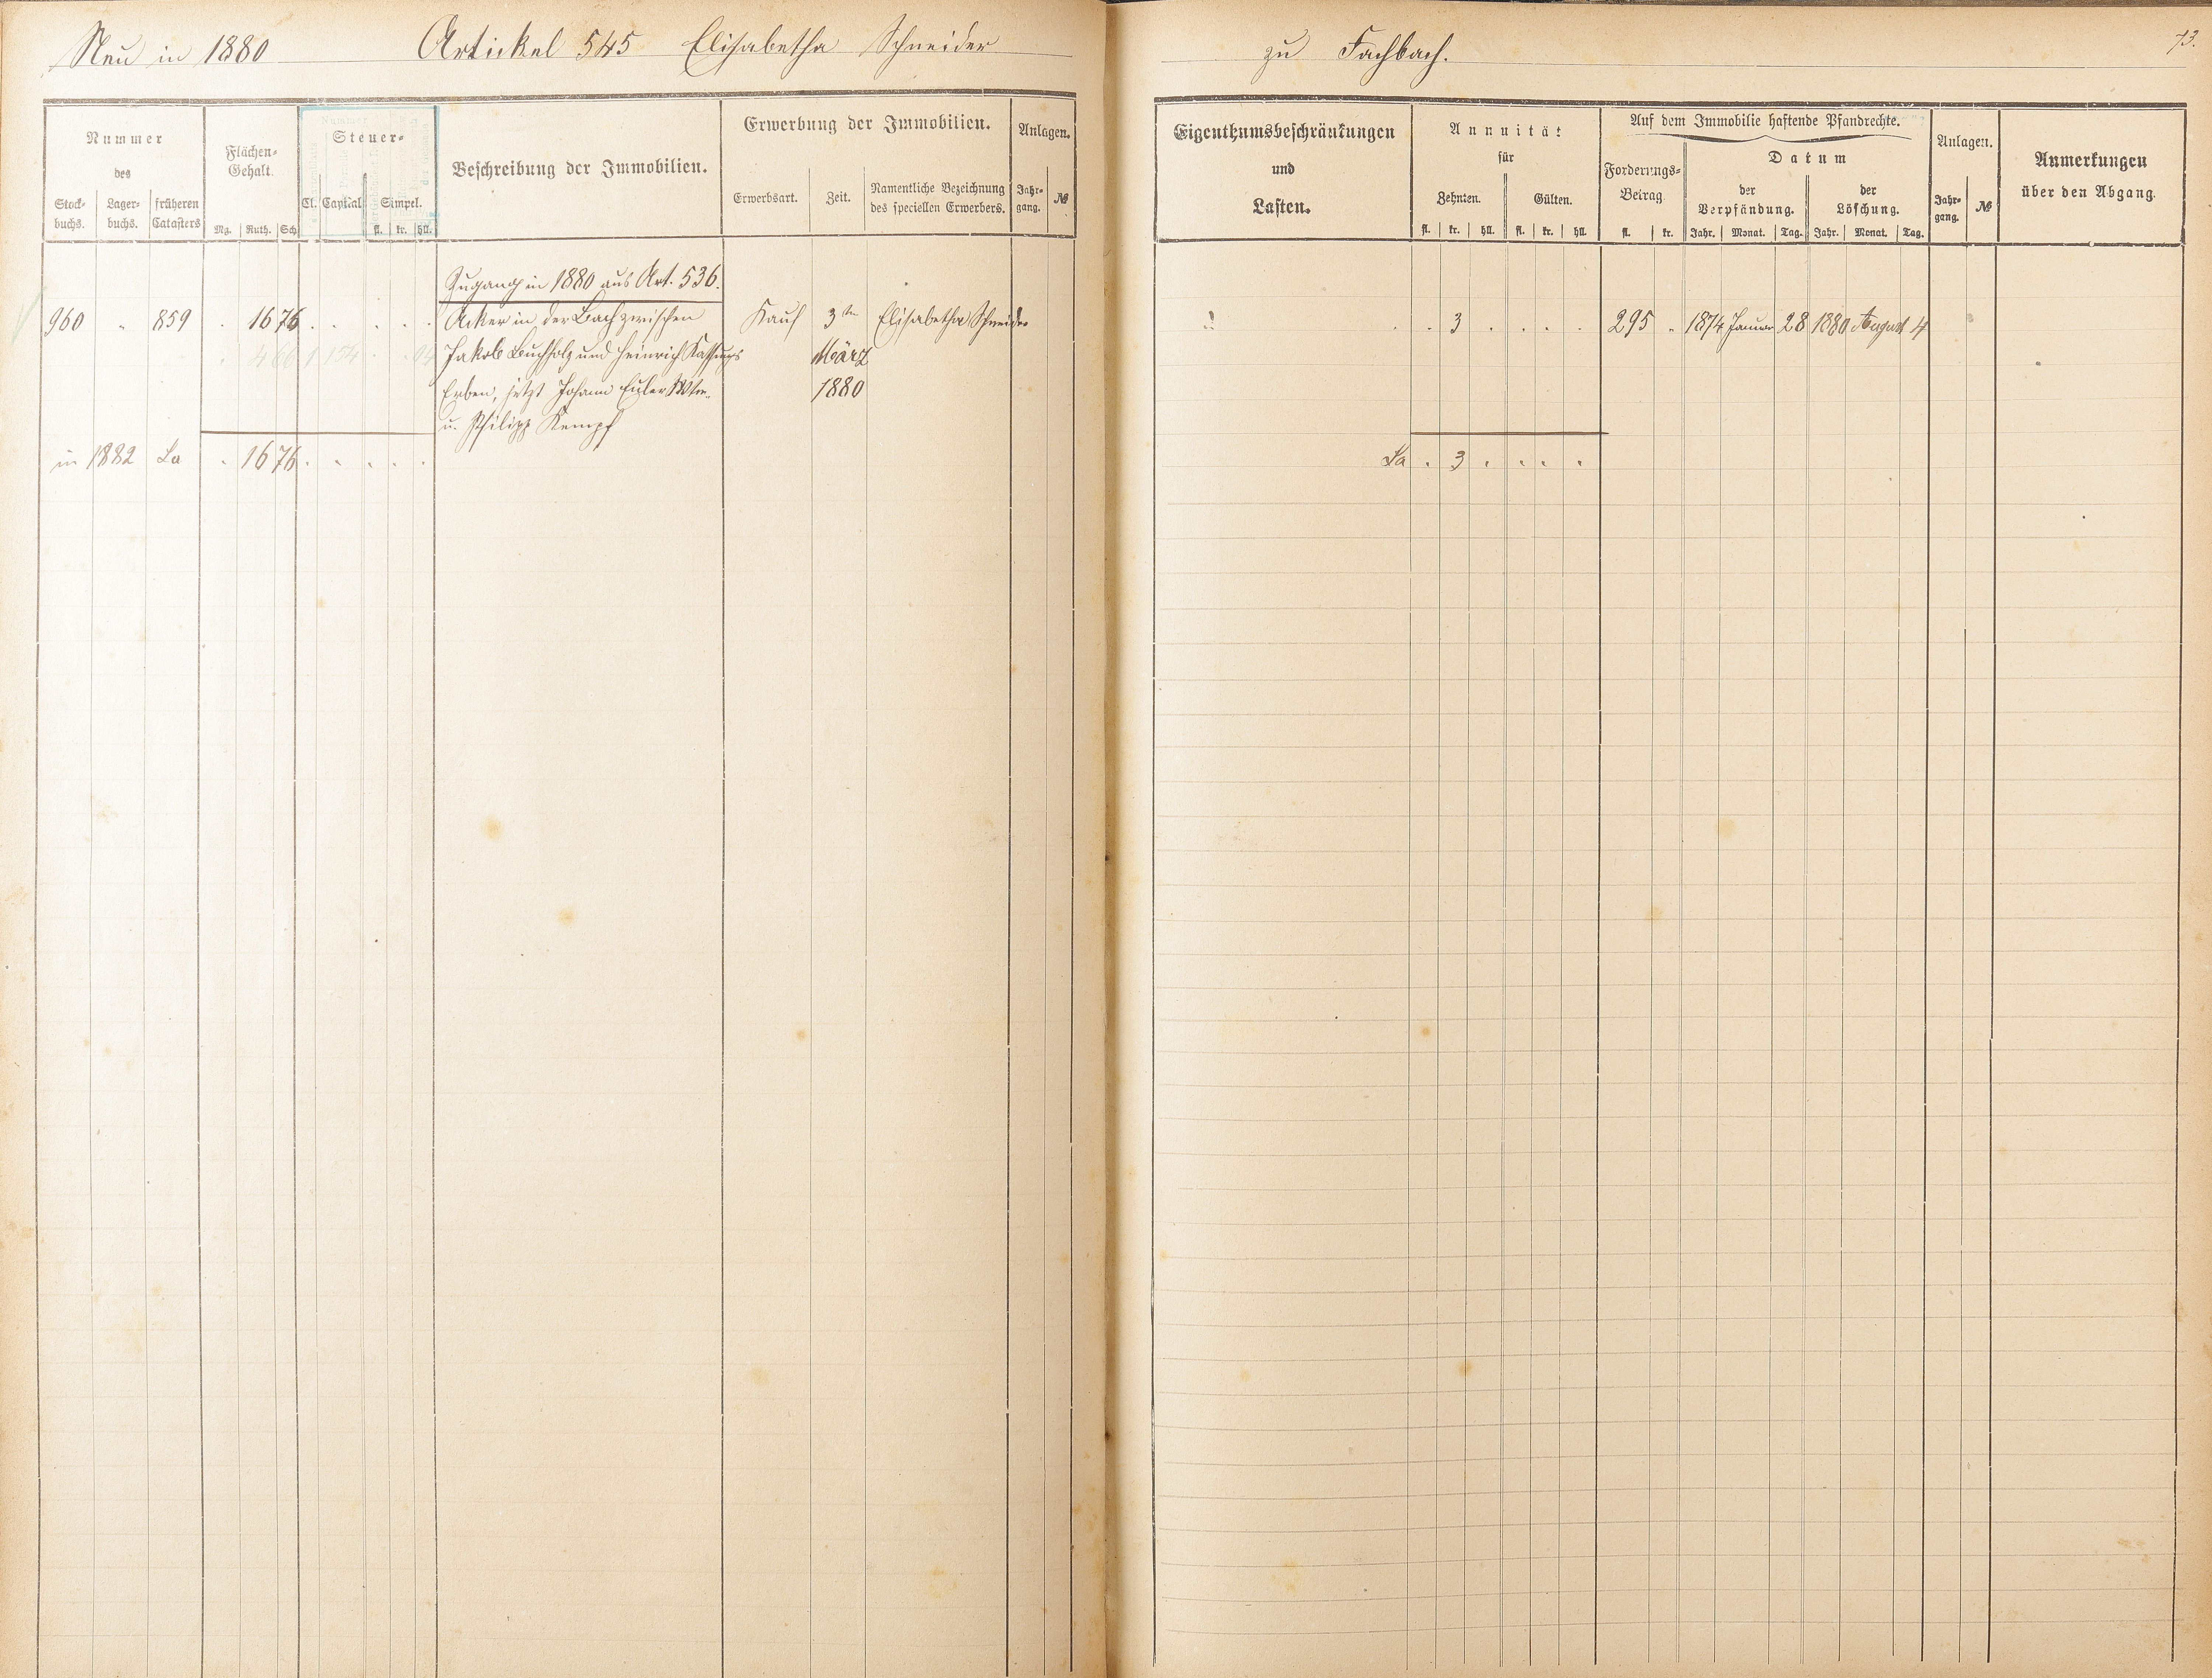 Neu in 1880 Artickel 545 Elisabetha Schneider
zu Fachbach.
73.
Nummer
des
Stock-
buchs.
Lager-
buchs.
früheren
Catasters
Flächen-
Gehalt.
Mg. Ruth. Sch.
Steuer-
Cl. Capital Simpel.
fl. kr. hll.
Beschreibung der Immobilien.
Erwerbung der Immobilien.
Erwerbsart. Zeit.
Namentliche Bezeichnung
des speciellen Erwerbers.
Anlagen.
Jahr-
gang.
№
Eigenthumsbeschränkungen
und
Lasten.
Annuität
für
Zehnten. Gülten.
fl. kr. hll. fl. kr. hll.
Auf dem Immobilie haftende Pfandrechte.
Forderungs-
Betrag.
fl. kr.
Datum
der
Verpfändung.
der
Löschung.
Jahr. Monat. Tag. Jahr. Monat. Tag.
Anlagen.
Jahr-
gang.
№
Anmerkungen
über den Abgang.
Zugang in 1880 aus Art. 536.
960 " 859 . 16 76 . . . . . Acker in der Bach zwischen Kauf 3ten Elisabetha Schneider . . 3 . . . . 295 . 1874 Januar 28 1880 August 4
Jakob Buchholz und Heinrich März
Erben, jetzt Johann Euler Wtw. 1880
u. Philipp Kempf
in 1882 Sa . 16 76 . . . . . Sa . 3 . . . .